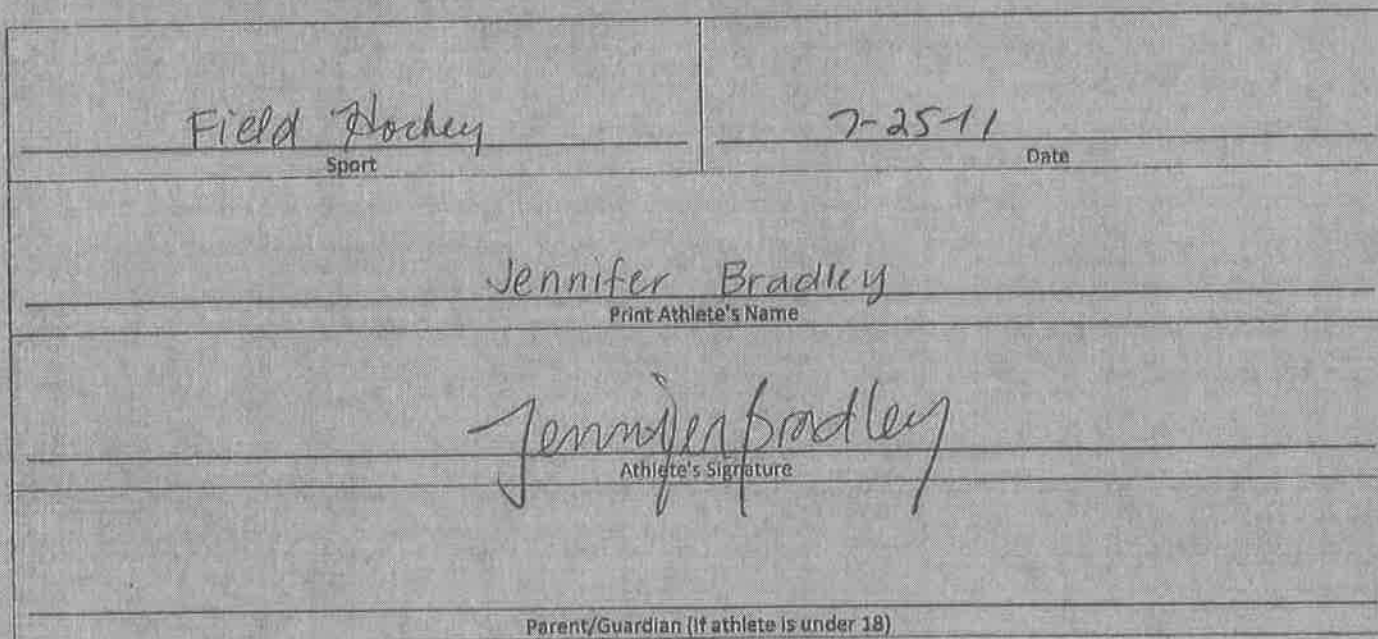 Field Hockey 7-25-11
Sport Date
Jennifer Bradley
Print Athlete's Name
Jennifer Bradley
Athlete's Signature
Parent/Guardian (If athlete is under 18)